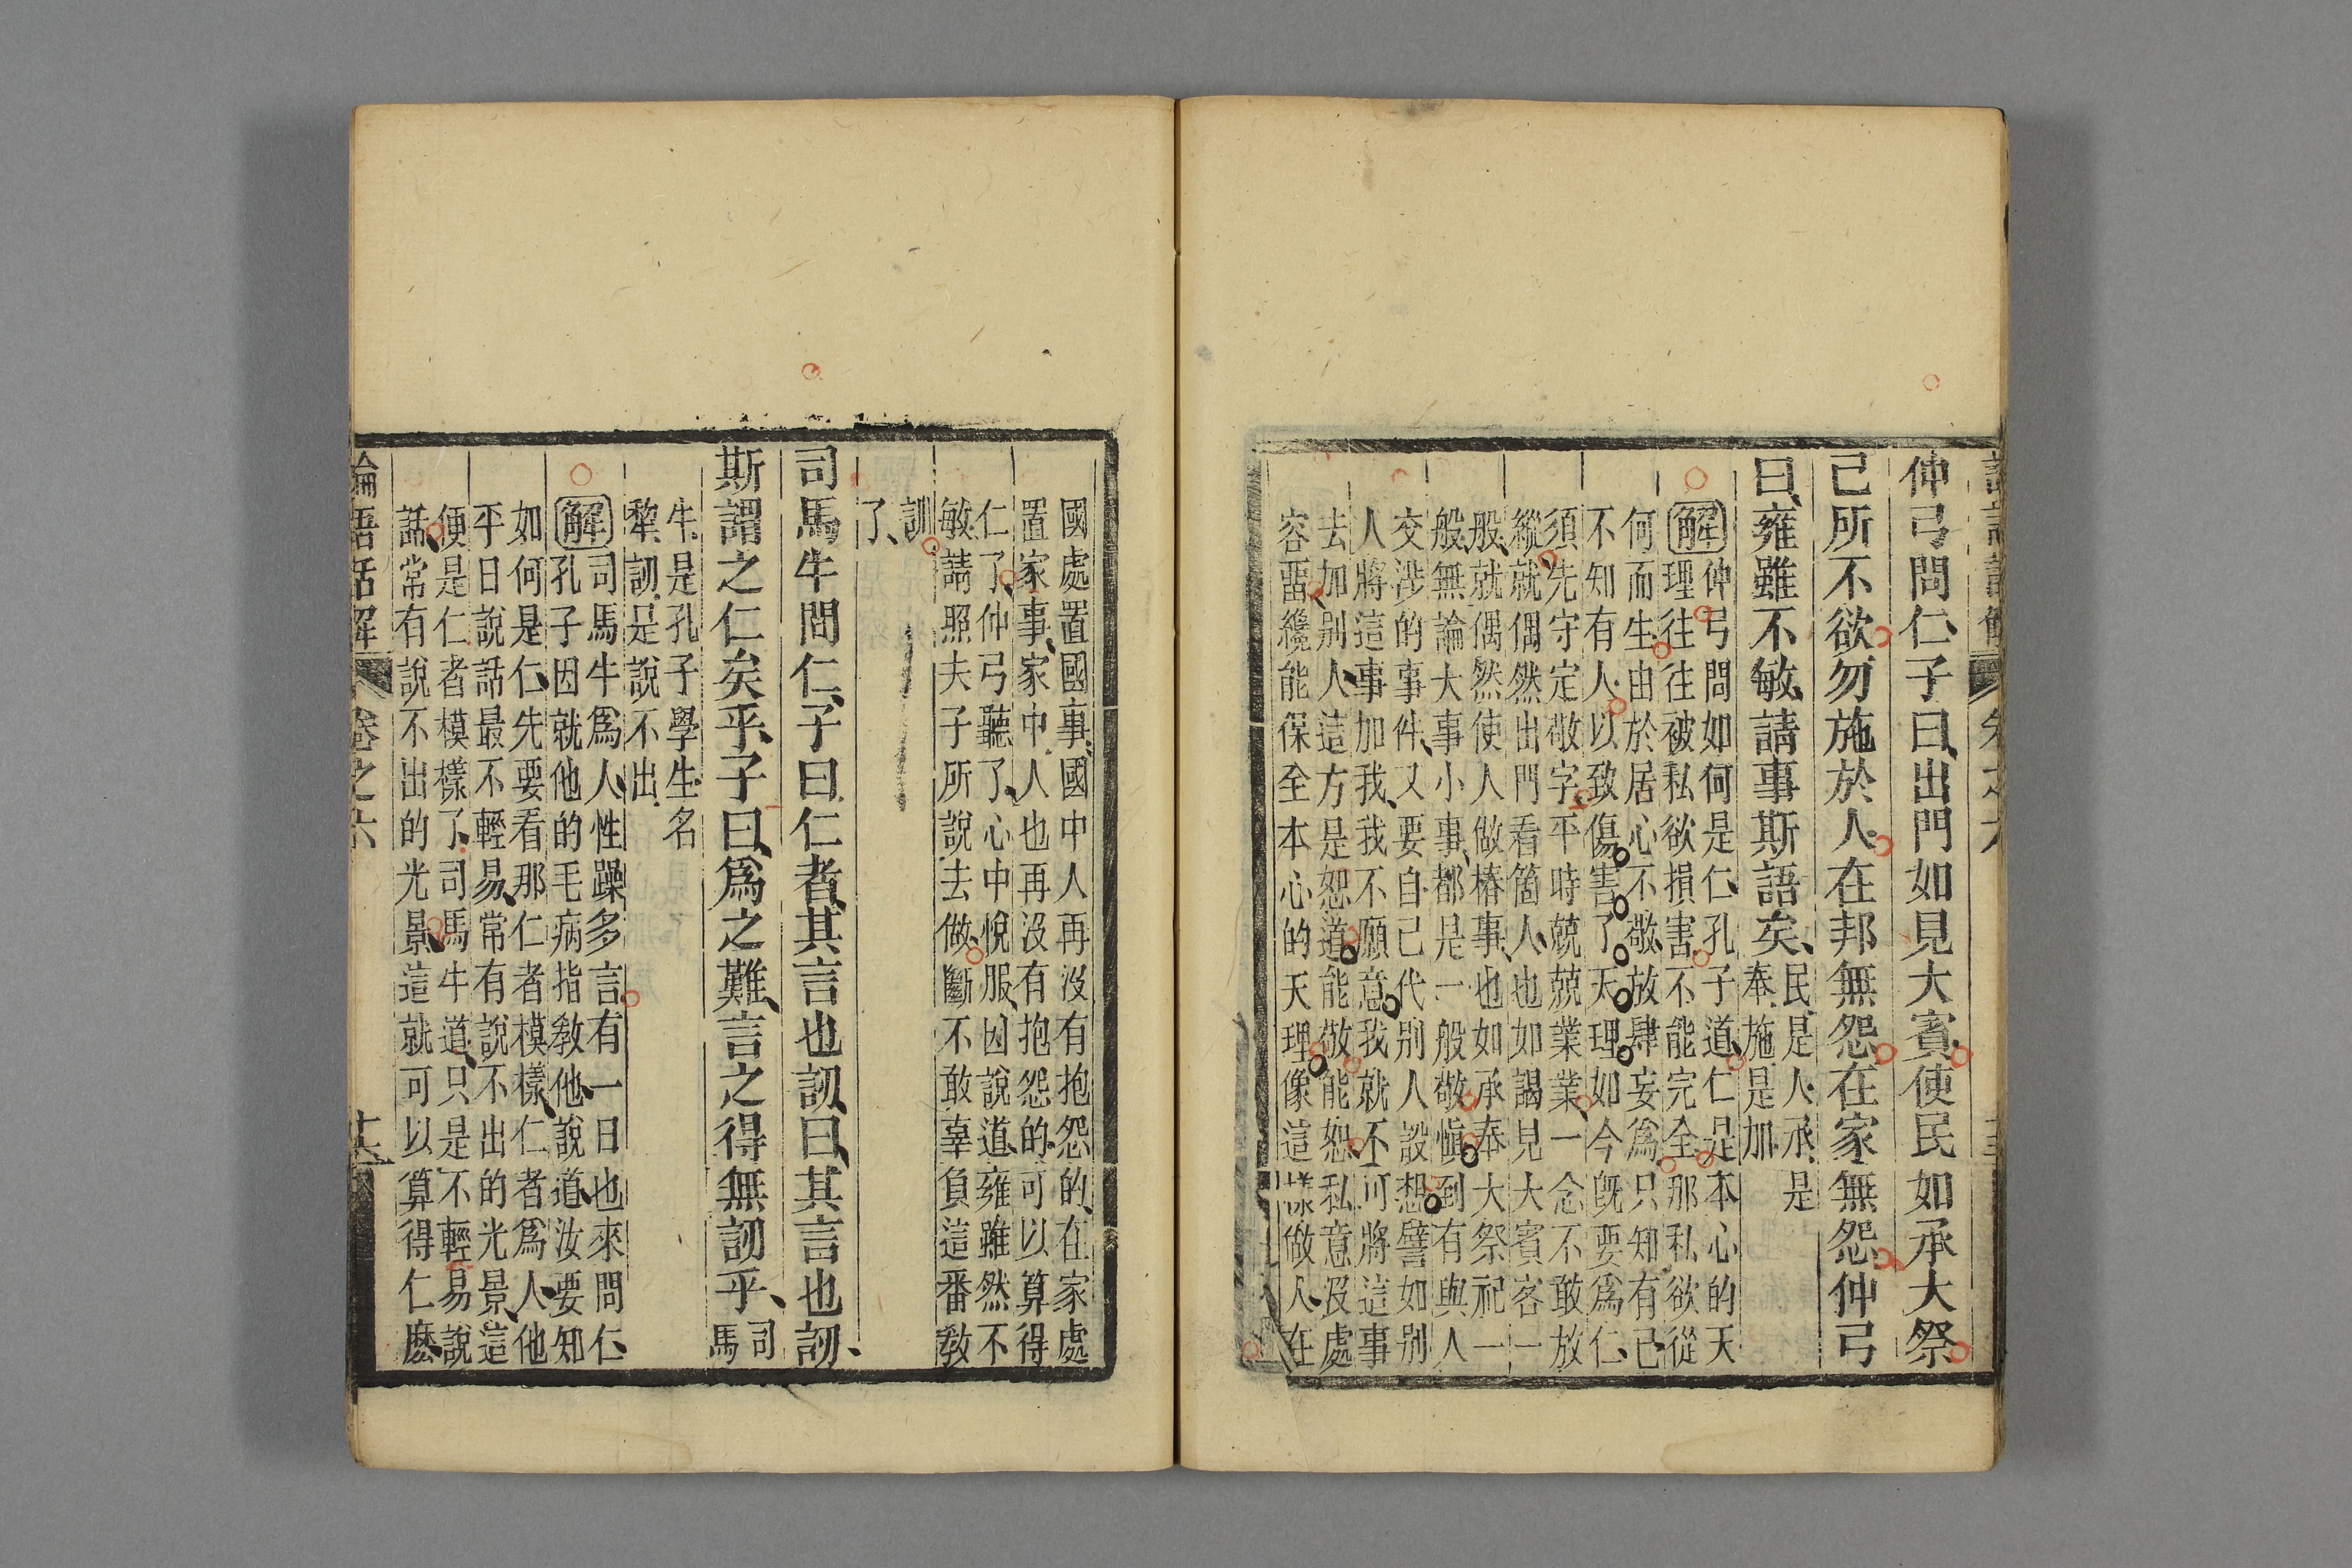 仲弓問仁、子曰、出門如見大賓、使民如承大祭
己所不欲勿施於人、在邦無怨在家無怨仲弓
曰、雍雖不敏、請事斯語矣、
民是人、承是
奉、施是加
解
仲弓問如何是仁、孔子道、仁是本心的天
理往往被私欲損害不能完全那私欲從
何而生由於居心不敬、放肆妄爲、只知有己、
不知有人、以致傷害了天理如今旣要爲仁、
須先守定敬字平時兢兢業業、一念不敢放
縱就偶然出門看箇人、也如謁見大賓客一
般、就偶然使人做樁事、也如承奉大祭祀一
般、無論大事小事、都是一般敬愼到有與人
交涉的事件、又要自己代別人設想譬如別
人將這事加我、我不願意我就不可將這事
去加別人、這方是恕道能敬能恕、私意沒處
容畱纔能保全本心的天理像這樣做人、在
國處置國事、國中人再沒有抱怨的、在家處
置家事、家中人也再沒有抱怨的、可以算得
仁了、仲弓聽了、心中悅服、因說道、雍雖然不
敏、請照夫子所說去做、斷不敢辜負這番敎
訓
了、
司馬牛問仁、子曰仁者、其言也訒、曰、其言也訒、
斯謂之仁矣乎、子曰、爲之難、言之得無訒乎、
司
馬
牛是孔子學生、名
犂、訒是說不出、
解
司馬牛爲人、性躁多言、有一日也來問仁、
孔子因就他的毛病指敎他、說道、汝要知
如何是仁、先要看那仁者模樣、仁者爲人、他
平日說話最不輕易、常有說不出的光景、這
便是仁者模樣了、司馬牛道、只是不輕易說
話、常有說不出的光景、這就可以算得仁麽、
論語話解
卷之六
十六